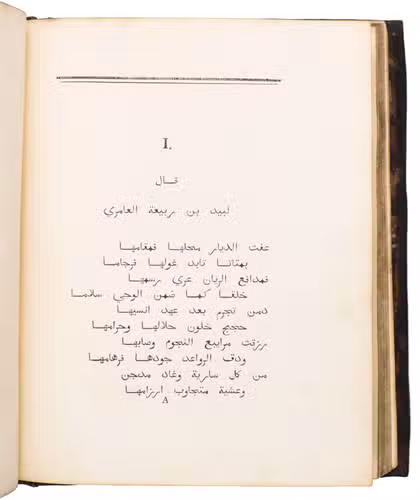 I.
قال
لبيد بن ربيعة العامري
عفت الديار محلها فمقامها
تابد غولها فرجامها
فمدافع الريان عري رسمها
خلقا كما ضمن الوحي سلاما
دمن تجرم بعد عهد انسيها
حجيج خلون حلالها وحرامها
رزقت مرابيع النجوم وصابها
ودق الرواعد جودها فرهامها
من كل سارية وغاد مدجن
وعشية متجاوب ارزامها
A